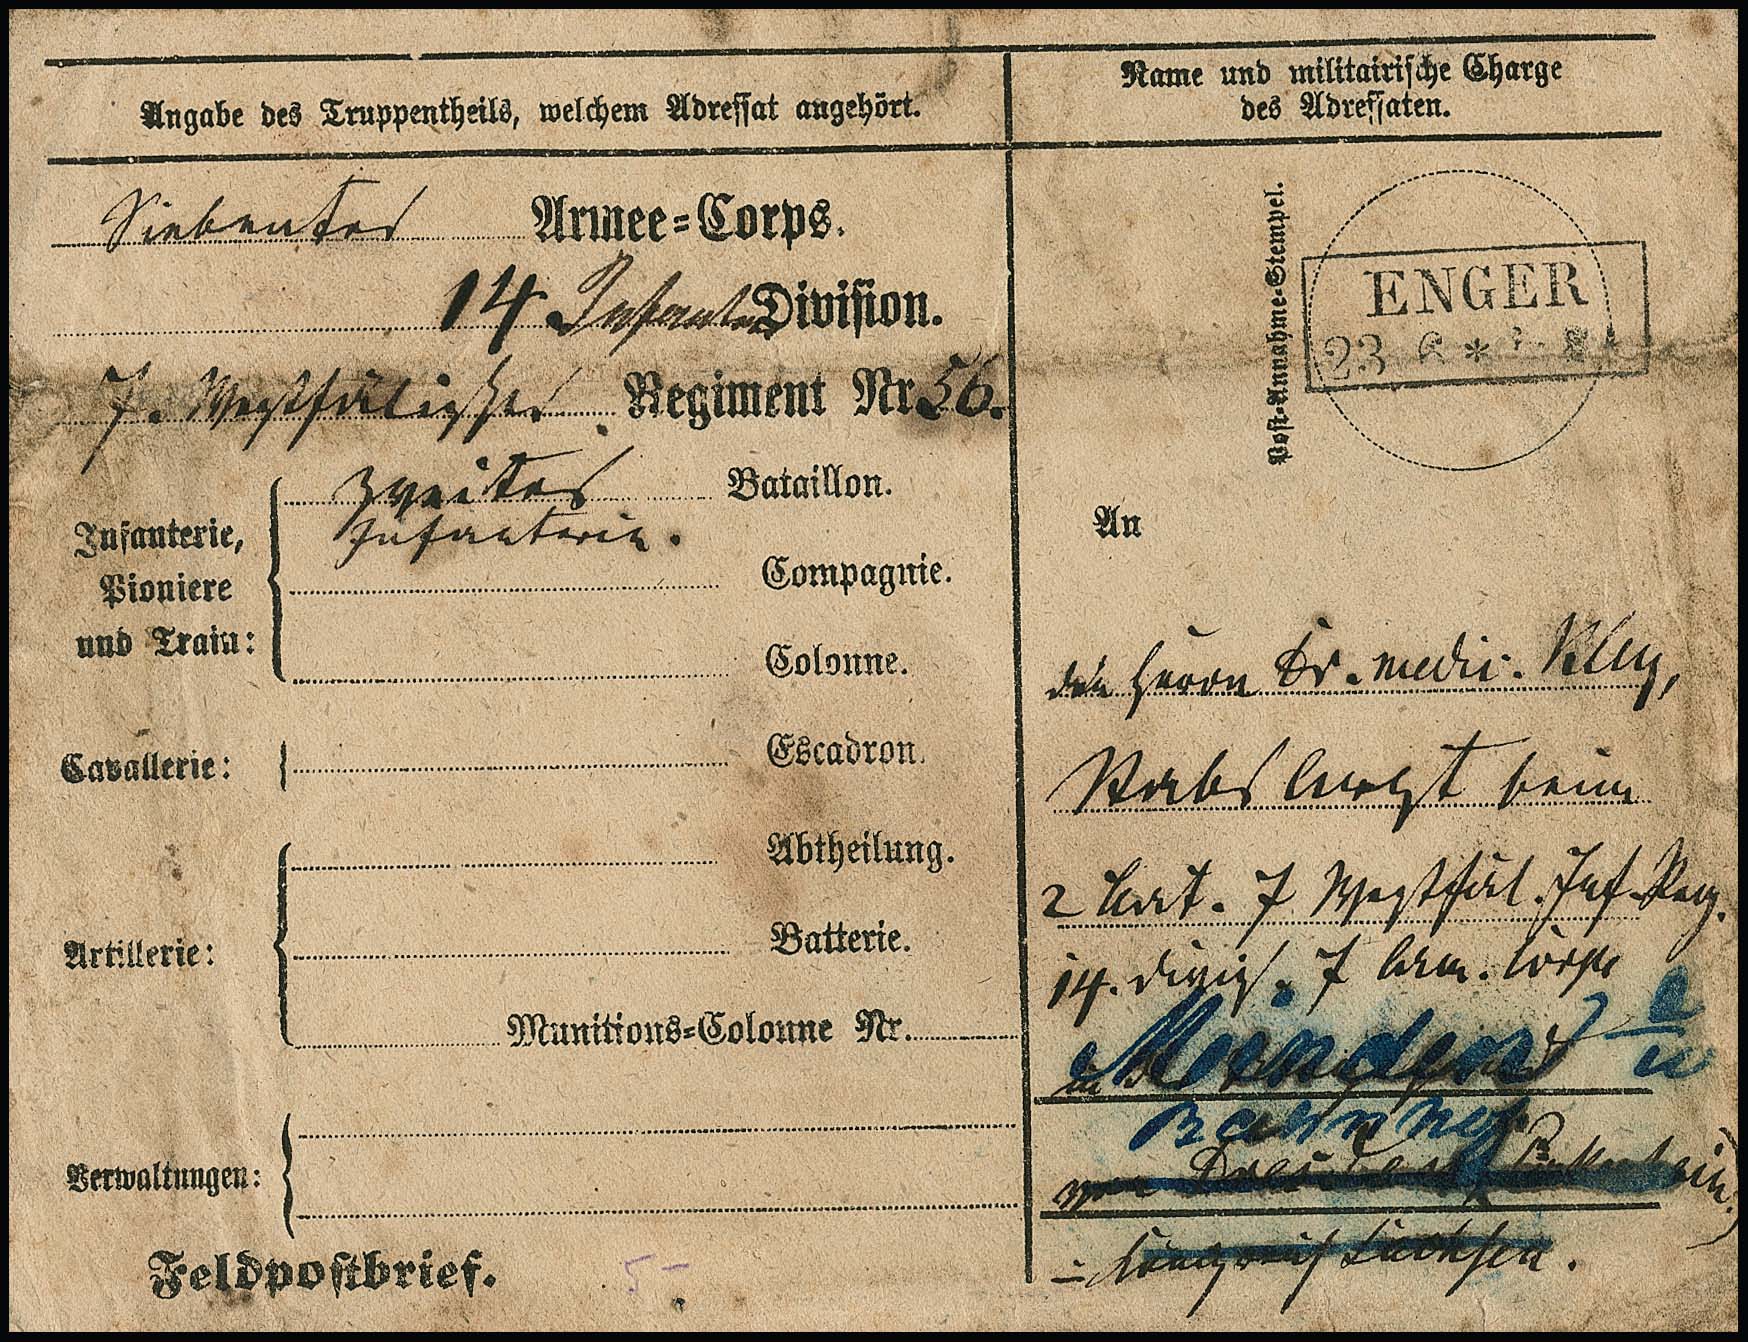 Angabe des Truppentheils, welchem Adressat angehört.
Name und militairische Charge
des Adressaten.
Siebentes Armee=Corps.
14. Infanterie Division.
7. Westfälisches Regiment Nr. 56.
Infanterie,
Pioniere
und Train:
zweites Bataillon.
Infanterie.
Compagnie.
Colonne.
Cavallerie: Escadron.
Artillerie:
Abtheilung.
Batterie.
Munitions=Colonne Nr.
Verwaltungen:
Feldpostbrief.
5-
Post=Annahme=Stempel.
ENGER
23 6 *
An
den Herrn Dr. medic.
Stabs Arzt beim
2 Bat. 7 Westfäl. Inf. Reg.
14. Divis. 7 Arm. Corps
in Minden
Bahnhof
Dresden
Königreich Sachsen.